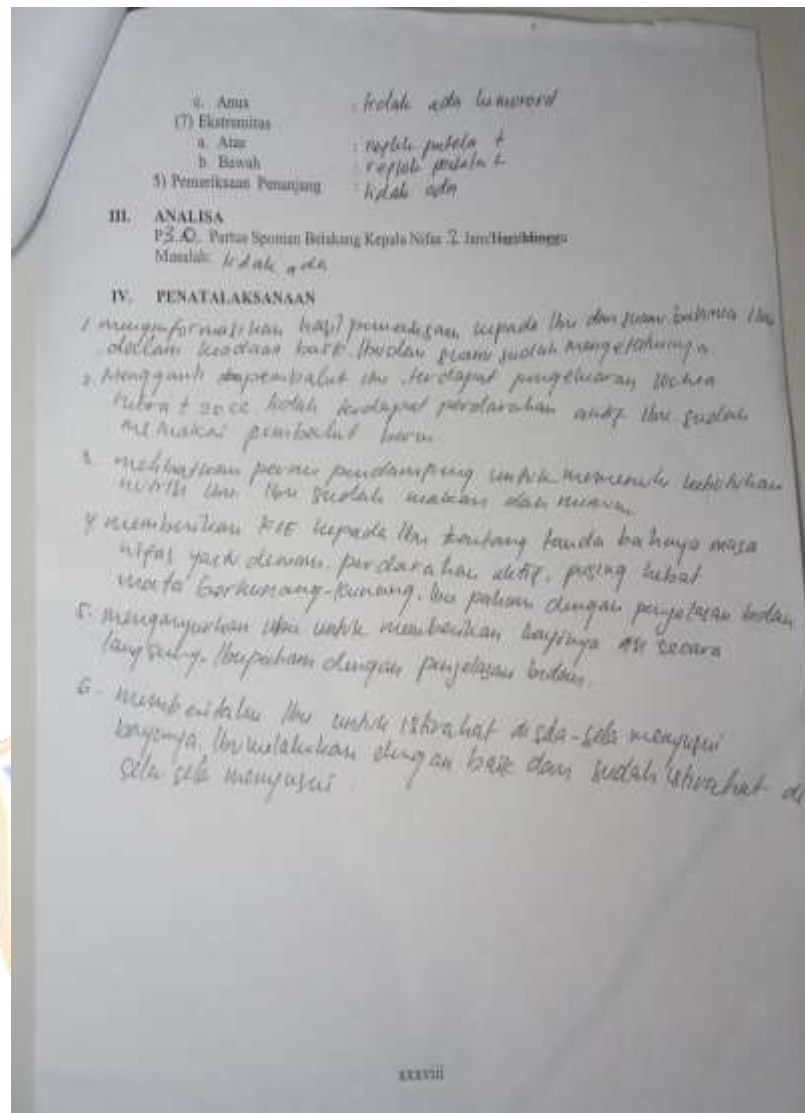 c. Anus : tidak ada hemoroid
(7) Ekstramitas
a. Atas : reflek patela +
b. Bawah : reflek patela +
5) Pemeriksaan Penunjang : tidak ada
III. ANALISA
P3.0. Partus Spontan Belakang Kepala Nifas 2 Jam/Hari/Minggu
Masalah: tidak ada
IV. PENATALAKSANAAN
1 menginformasikan hasil pemeriksaan kepada Ibu dan suami bahwa Ibu
dallam keadaan baik. Ibu dan suami sudah mengetahuinya.
2. Mengganti pembalut ibu, terdapat pengeluaran lochea
rubra ± 20 cc tidak terdapat perdarahan aktif Ibu sudah
memakai pembalut baru
3. melibatkan peran pendamping untuk memenuhi kebutuhan
nutrisi ibu. Ibu sudah makan dan minum
4 memberikan KIE kepada Ibu tentang tanda bahaya masa
nifas yaitu demam, perdarahan aktif, pusing hebat
mata berkunang-kunang. Ibu paham dengan penjelasan bidan
5. menganjurkan ibu untuk memberikan bayinya ASI secara
langsung. Ibu paham dengan penjelasan bidan.
6. memberitahu Ibu untuk istirahat di sela-sela menyusui
bayinya. Ibu melakukan dengan baik dan sudah istirahat di
sela sela menyusui.
xxxviii